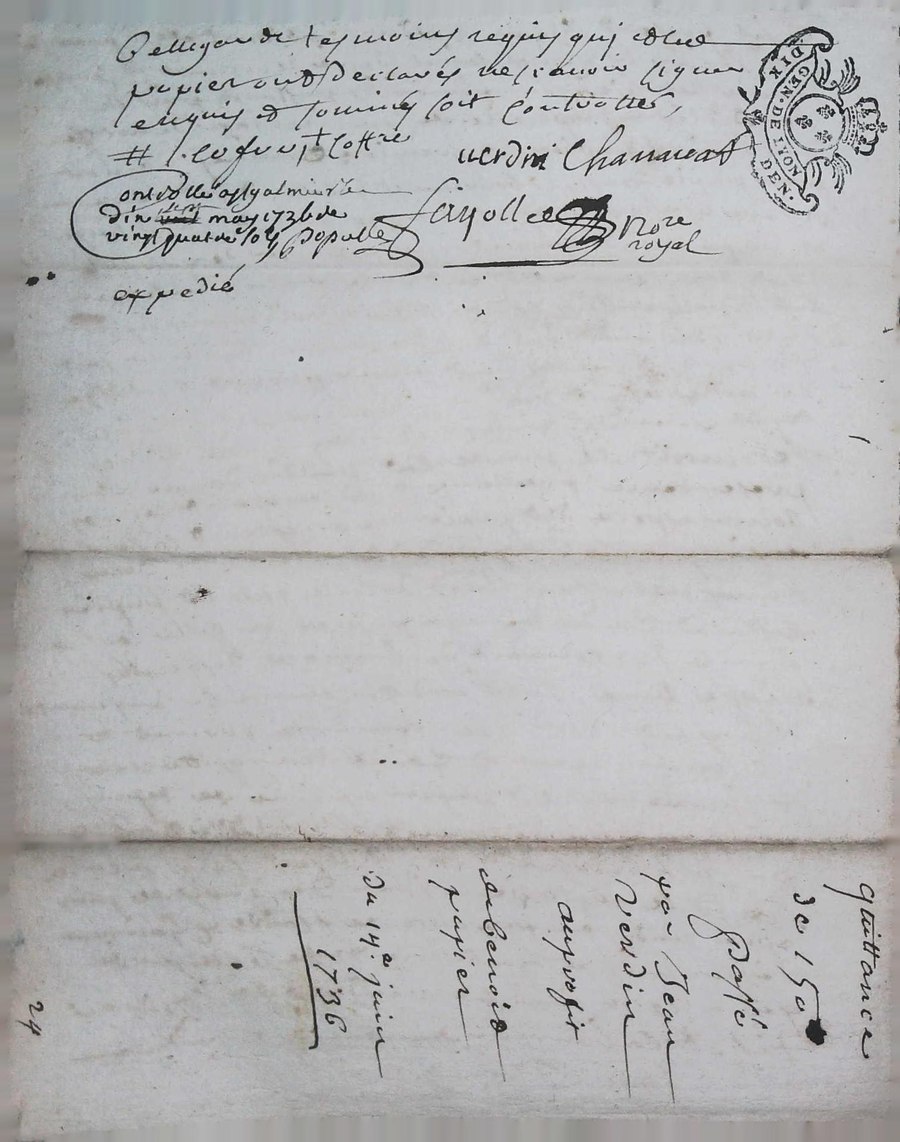 Bellegarde tesmoins requis qui et led
papier ont declarés ne scavoir signer
enquis et sommés soit controllé,
# l. coffre, + coffre
verdin Chanavat
ontrollé a St galmier le
dix may 1736 de
vingt quatre sols
fayolle Nore
royal
expedié
GEN. DE LION
DIX DEN.
quittance
de 150
Passé
par Jean
Verdin
au profit
de benoit
papier
du 14e juin
1736
24